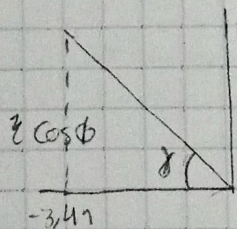 cosϕ
γ
-3,41